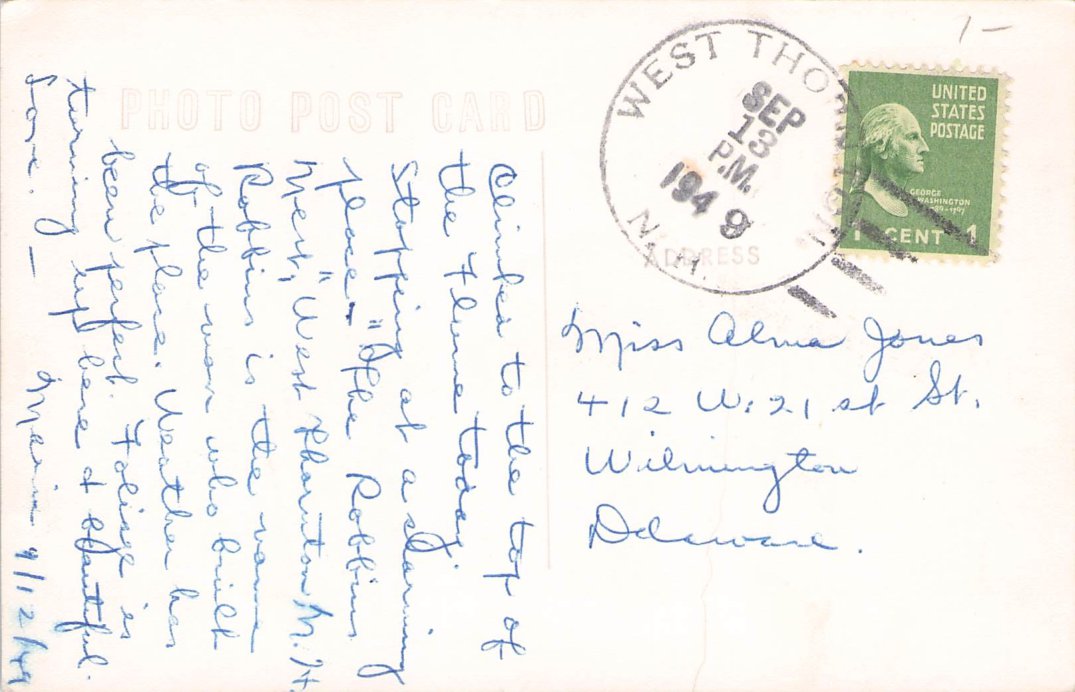 1-
PHOTO POST CARD
WEST THORNTON
SEP
13
P.M.
1949
N.H.
UNITED
STATES
POSTAGE
GEORGE
WASHINGTON
1789-1797
1 CENT 1
ADDRESS
Climbed to the top of
the Flume today.
Stopping at a charming
place - "The Robbins
Nest," West Thornton N.H.
Robbins is the name
of the man who built
the place. Weather has
been perfect. Foliage is
turning up here & beautiful.
Love. —
9/12/49
Miss Alma Jones
412 W. 21 st St.
Wilmington
Delaware.